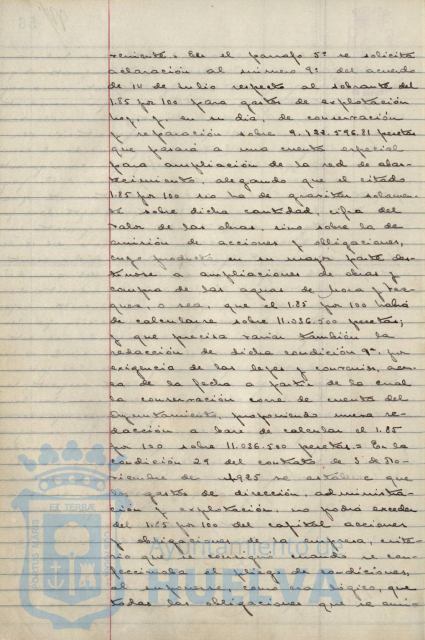 veniente. En el párrafo 5º se solicita
aclaración al número 9º del acuerdo
de 14 de Julio respecto al sobrante del
1.85 por 100 para gastos de explotación
hoy, y, en su día, de conservación
y reparación sobre 9.122.596.81 pesetas
que pasará a una cuenta especial
para ampliación de la red de abas-
tecimiento, alegando que el citado
1.85 por 100 no ha de gravitar solamen-
te sobre dicha cantidad, cifra del
valor de las obras, sino sobre la de
emisión de acciones y obligaciones,
cuyo producto en su mayor parte des-
tinose a ampliaciones de obras y
compra de las aguas de
o sea, que el 1.85 por 100 habrá
de calcularse sobre 11.036.500 pesetas;
y que precisa variar también la
redacción de dicha condición 9ª, por
exigencia de las leyes y convenios, acer-
ca de la fecha a partir de la cual
la conservación corre de cuenta del
Ayuntamiento, proponiendo nueva re-
dacción a base de calcular el 1.85
por 100 sobre 11.036.500 pesetas.= En la
condición 29 del contrato de 3 de No-
viembre de 1925 se establece que
los gastos de dirección, administra-
ción y explotación, no podrá exceder
del 1.85 por 100 del capital acciones
y obligaciones de la empresa, crite-
rio que se consignó cuando se con-
feccionaba el pliego de condiciones,
al suponerse, como era lógico, que
todas las obligaciones que se emi-
Ayuntamiento de
HUELVA
PORTUS MARIS
ET TERRAE